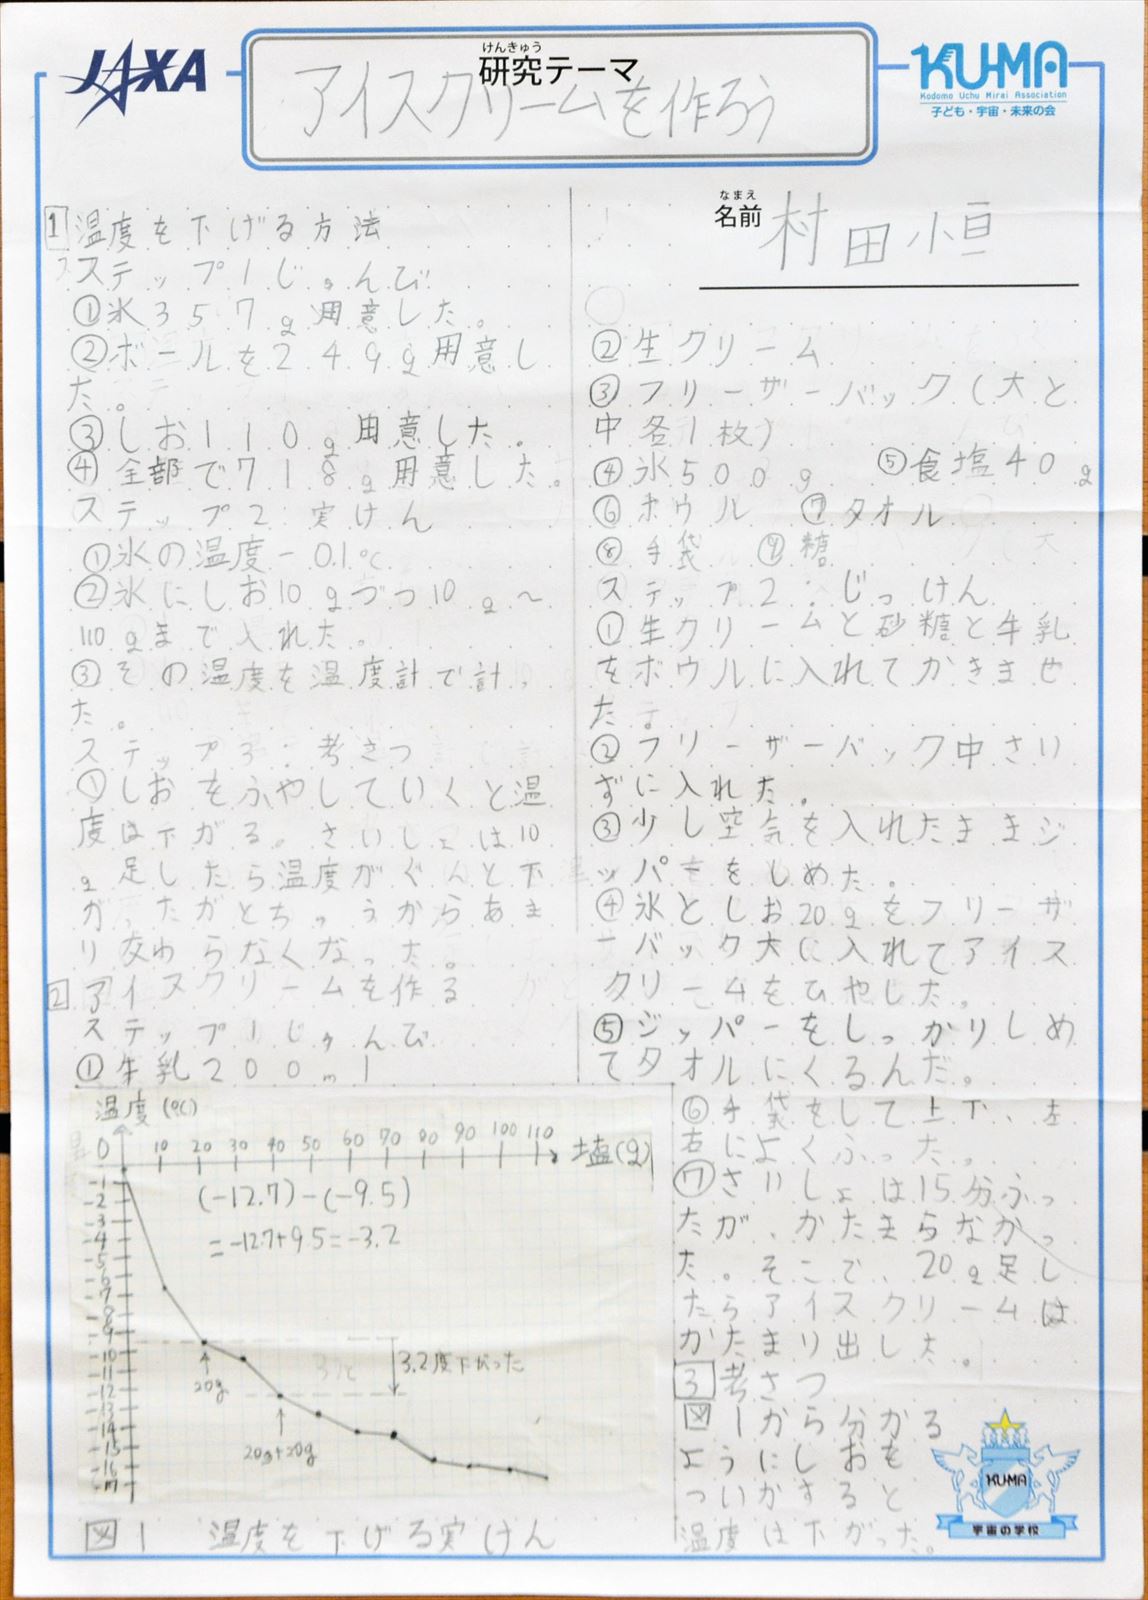 JAXA
けんきゅう
研究テーマ
アイスクリームを作ろう
KU-MA
Kodomo Uchu Mirai Association
子ども・宇宙・未来の会
なまえ
名前
村田恒
1 温度を下げる方法
ステップ1じゅんび
①氷357g用意した。
②ボールを249g用意し
た。
③しお110g用意した。
④全部で718g用意した。
ステップ2 実けん
①氷の温度-0.1℃
②氷にしお10gづつ10g〜
110gまで入れた。
③その温度を温度計で計っ
た。
ステップ3:考さつ
①しおをふやしていくと温
度は下がる。さいしょは10
g足したら温度がぐんと下
がったがとちゅうからあま
り変わらなくなった。
2 アイスクリームを作る
ステップ1じゅんび
①牛乳200ml
②生クリーム
③フリーザーバック(大と
中各1枚)
④氷500g ⑤食塩40g
⑥ボウル ⑦タオル
⑧手袋 ⑨糖
ステップ2:じっけん
①生クリームと砂糖と牛乳
をボウルに入れてかきませ
た。
②フリーザーバック中さい
ずに入れた。
③少し空気を入れたままジ
ッパをしめた。
④氷としお20gをフリーザ
ーバック大に入れてアイス
クリームをひやした。
⑤ジッパーをしっかりしめ
てタオルにくるんだ。
⑥手袋をして上下、左
右によくふった。
⑦さいしょは15分ふっ
たが、かたまらなかっ
た。そこで、20g足し
たらアイスクリームは
かたまり出した。
3 考さつ
図1から分かる
ようにしおを
ついかすると
温度は下がった。
温度(℃)
0 10 20 30 40 50 60 70 80 90 100 110 塩(g)
-1
-2
-3
-4
-5
-6
-7
-8
-9
-10
-11
-12
-13
-14
-15
-16
-17
(-12.7)-(-9.5)
=-12.7+9.5=-3.2
3.2度下がった
20g
20g+20g
図1 温度を下げる実けん
KU-MA
宇宙の学校